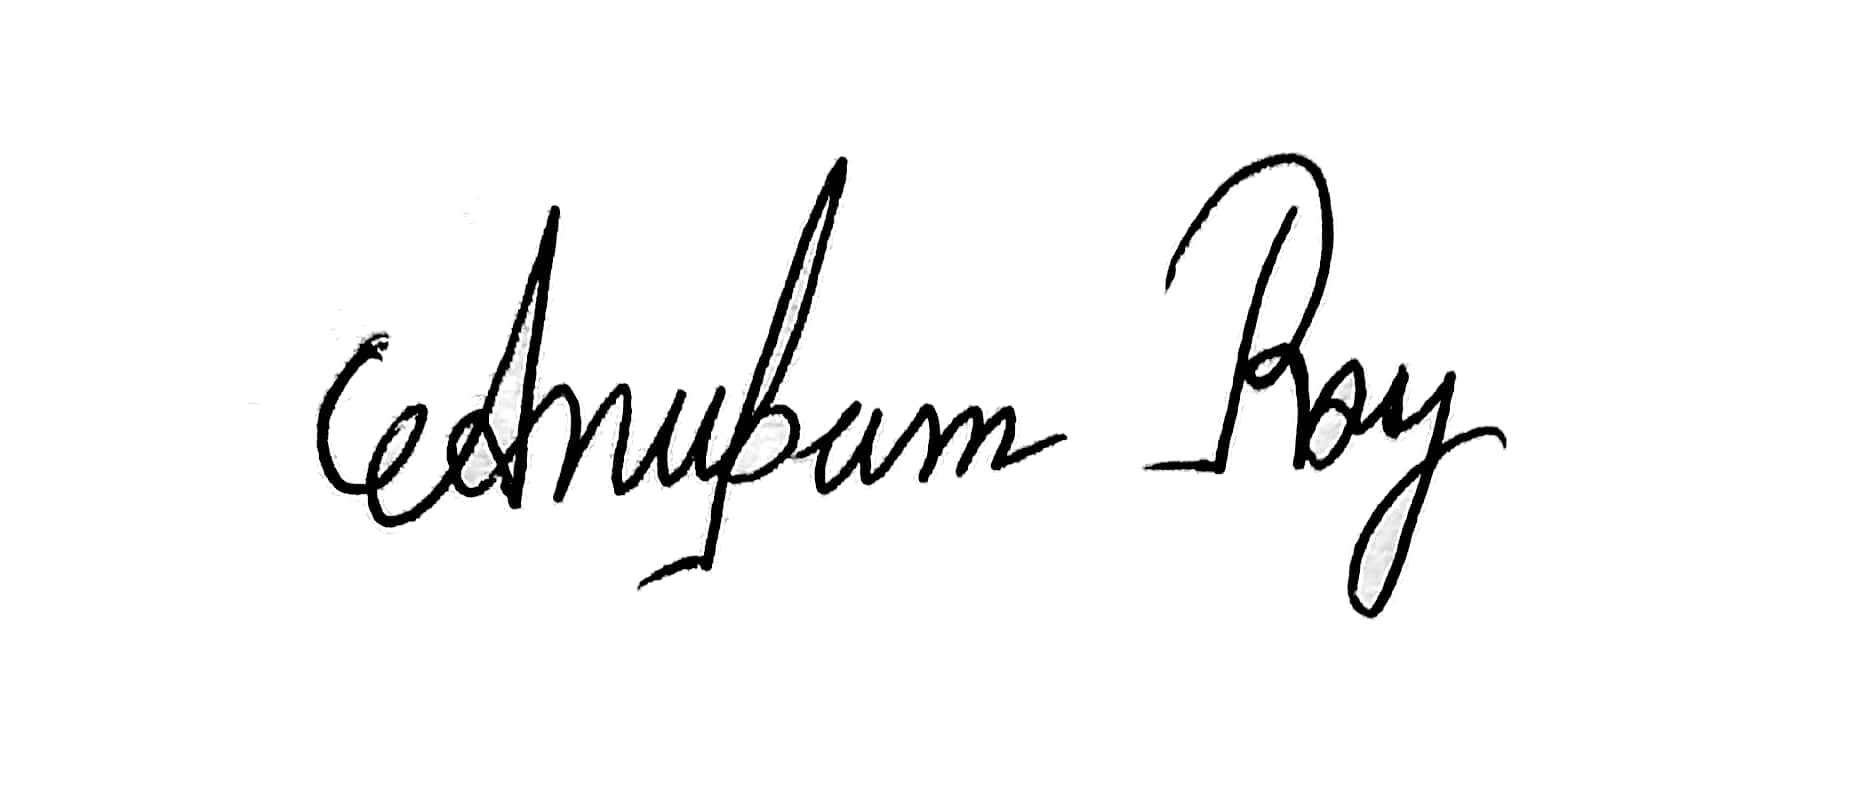 Anupam Roy